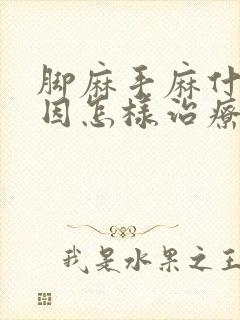 脚麻手麻什
因怎樣治療
我是水果之王